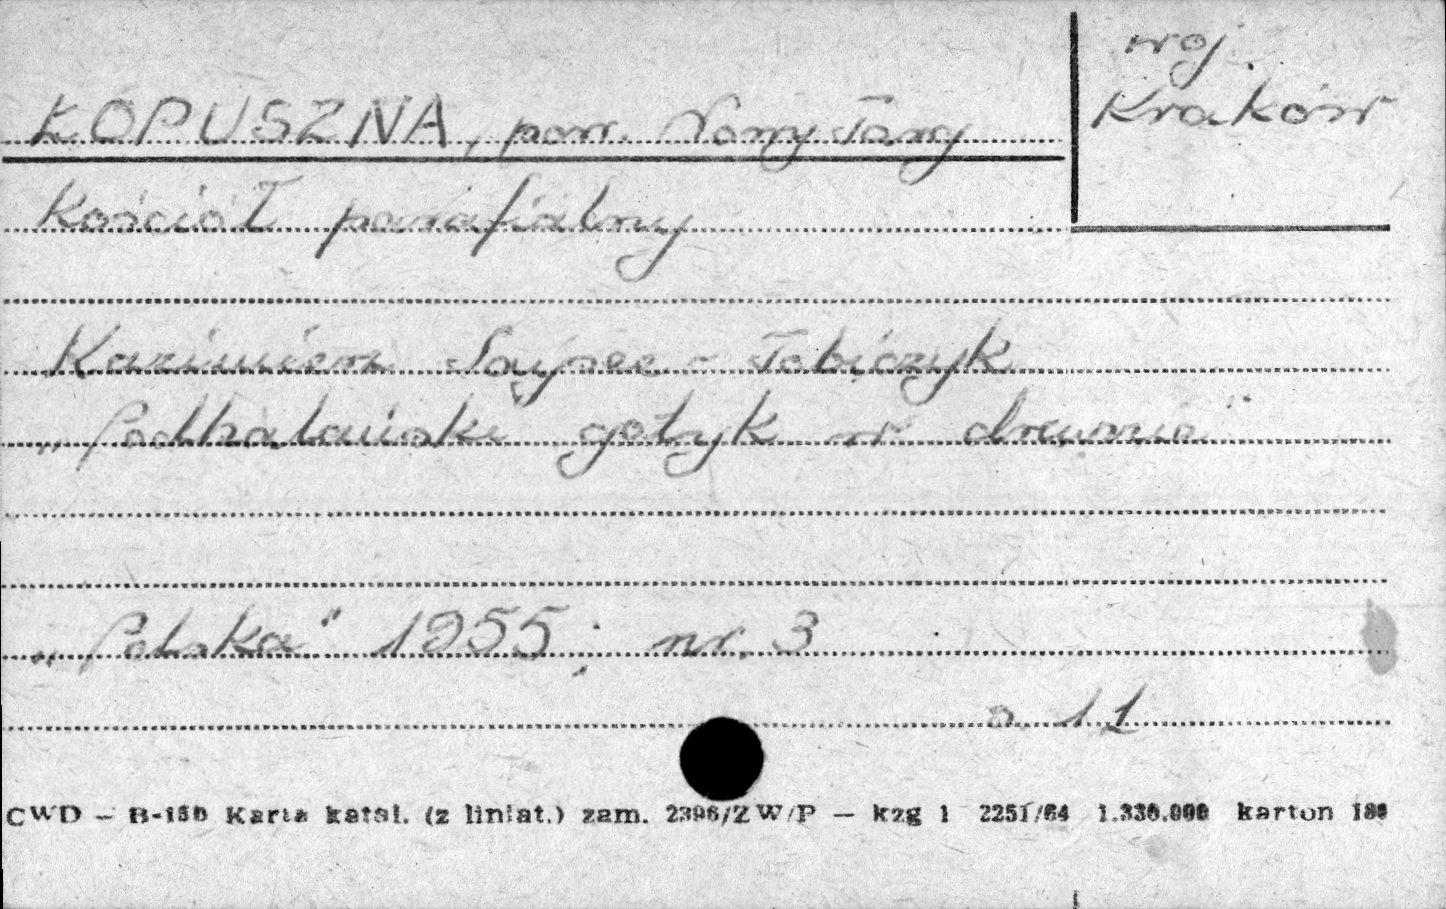 woj.
Kraków
ŁOPUSZNA, pow. Nowy Targ
Kościół parafialny
Kazimierz Saysse-Tobiczyk
„Podhalański gotyk w drewnie"
„Polska" 1955; nr. 3
s. 11
CWD — B-150 Karta katal. (z liniat.) zam. 2396/ZW/P — kzg 1 2251/64 1.330.000 karton 180